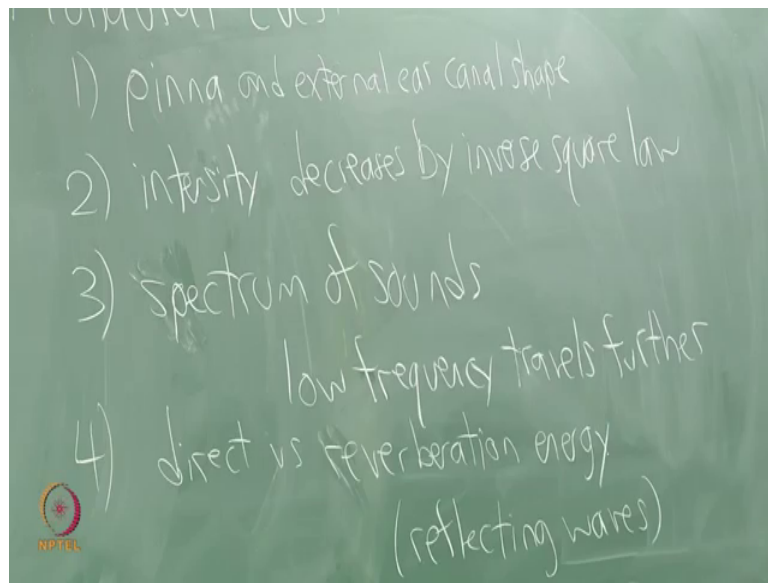 1) pinna and external ear canal shape
2) intensity decreases by inverse square law
3) spectrum of sounds
low frequency travels further
4) direct vs reverberation energy
(reflecting waves)
NPTEL